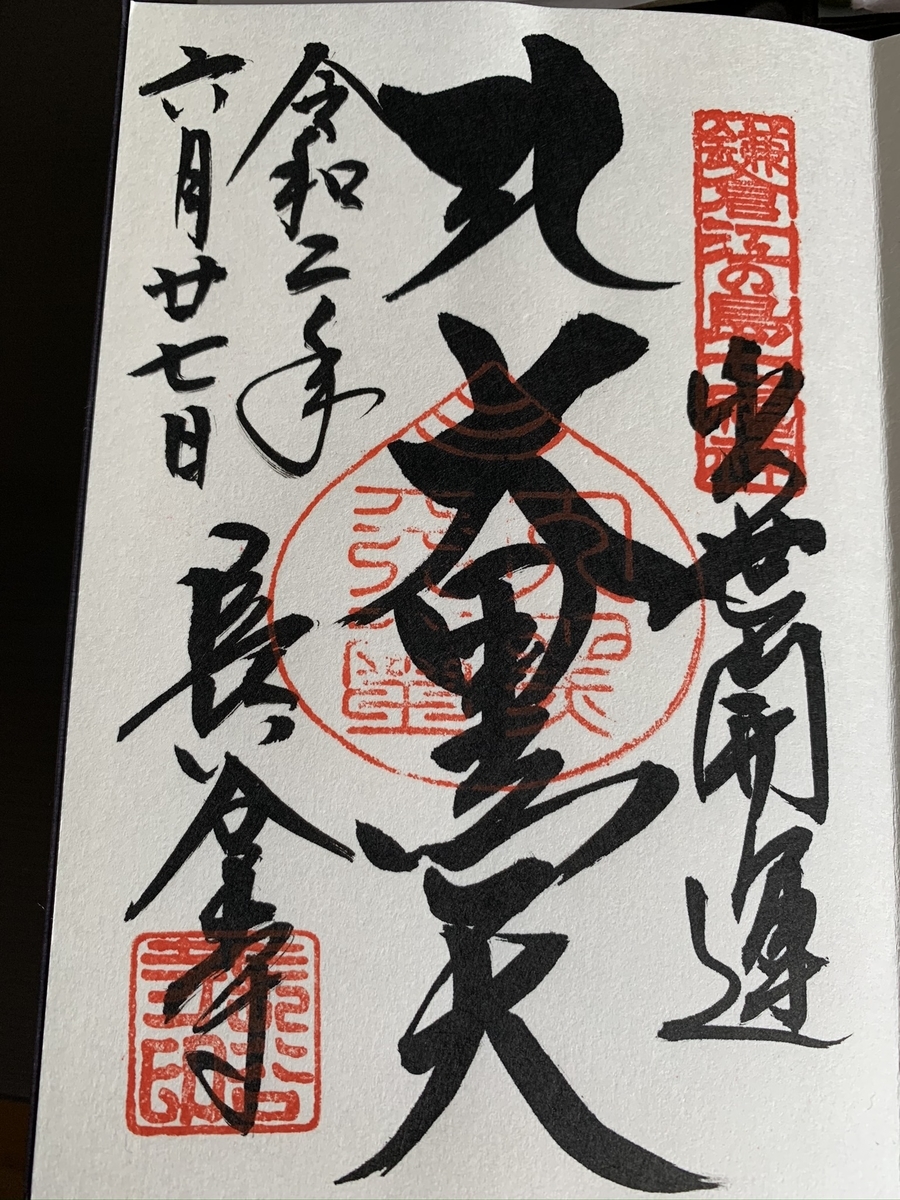 鎌倉江の島七福神
出世開運
大黒天
令和二年
六月廿七日
長谷寺